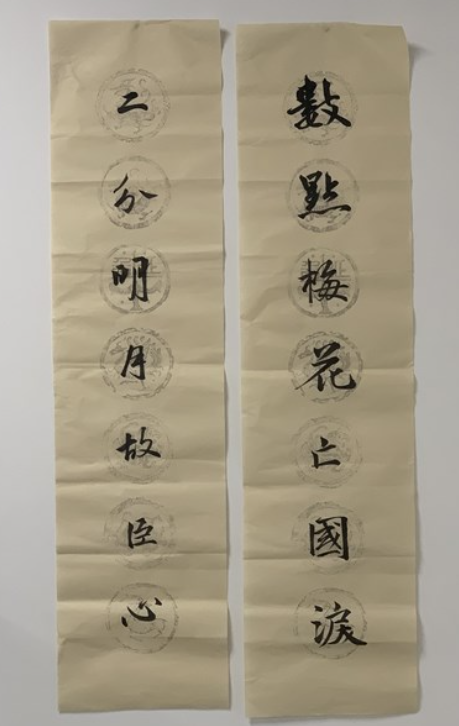 數點梅花亡國淚
二分明月故臣心